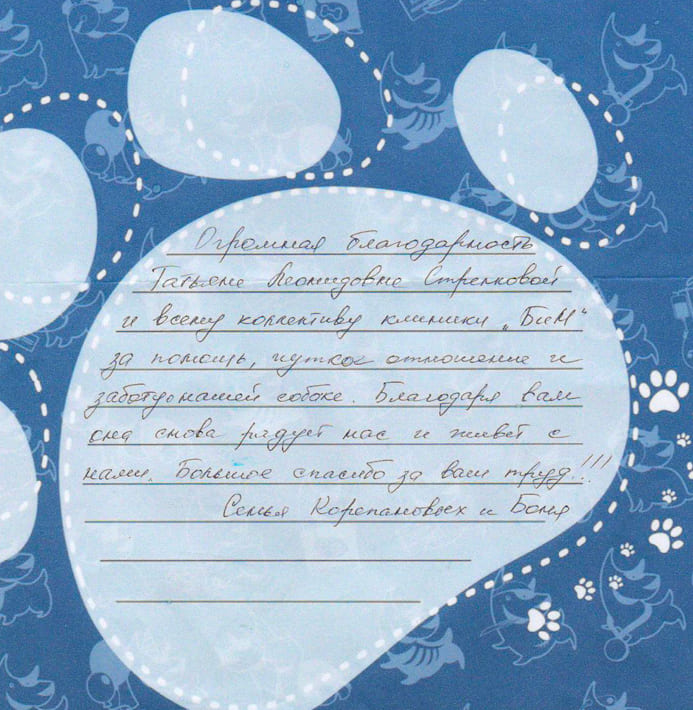 Огромная благодарность
Татьяне Леонидовне Стрелковой
и всему коллективу клиники „БиМ“
за помощь, чуткое отношение и
заботу о нашей собаке. Благодаря вам
она снова радует нас и живёт с
нами. Большое спасибо за ваш труд..!!!
Семья Корепановых и Боня